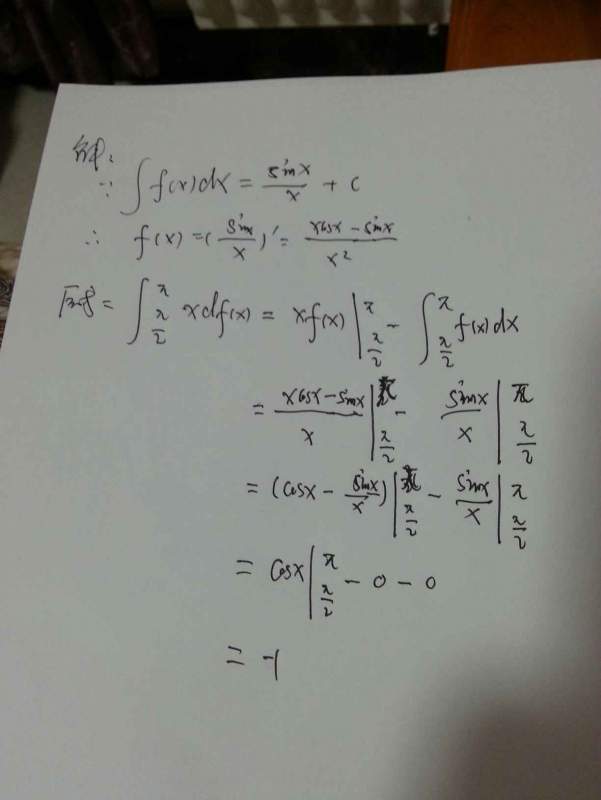 解:
∵ ∫f(x)dx = sinx/x + c
∴ f(x) = (sinx/x)' = (xcosx - sinx)/x²
原式 = ∫_{π/2}^{π} xdf(x) = xf(x)|_{π/2}^{π} - ∫_{π/2}^{π} f(x)dx
= (xcosx - sinx)/x |_{π/2}^{π} - sinx/x |_{π/2}^{π}
= (cosx - sinx/x)|_{π/2}^{π} - sinx/x |_{π/2}^{π}
= cosx|_{π/2}^{π} - 0 - 0
= -1